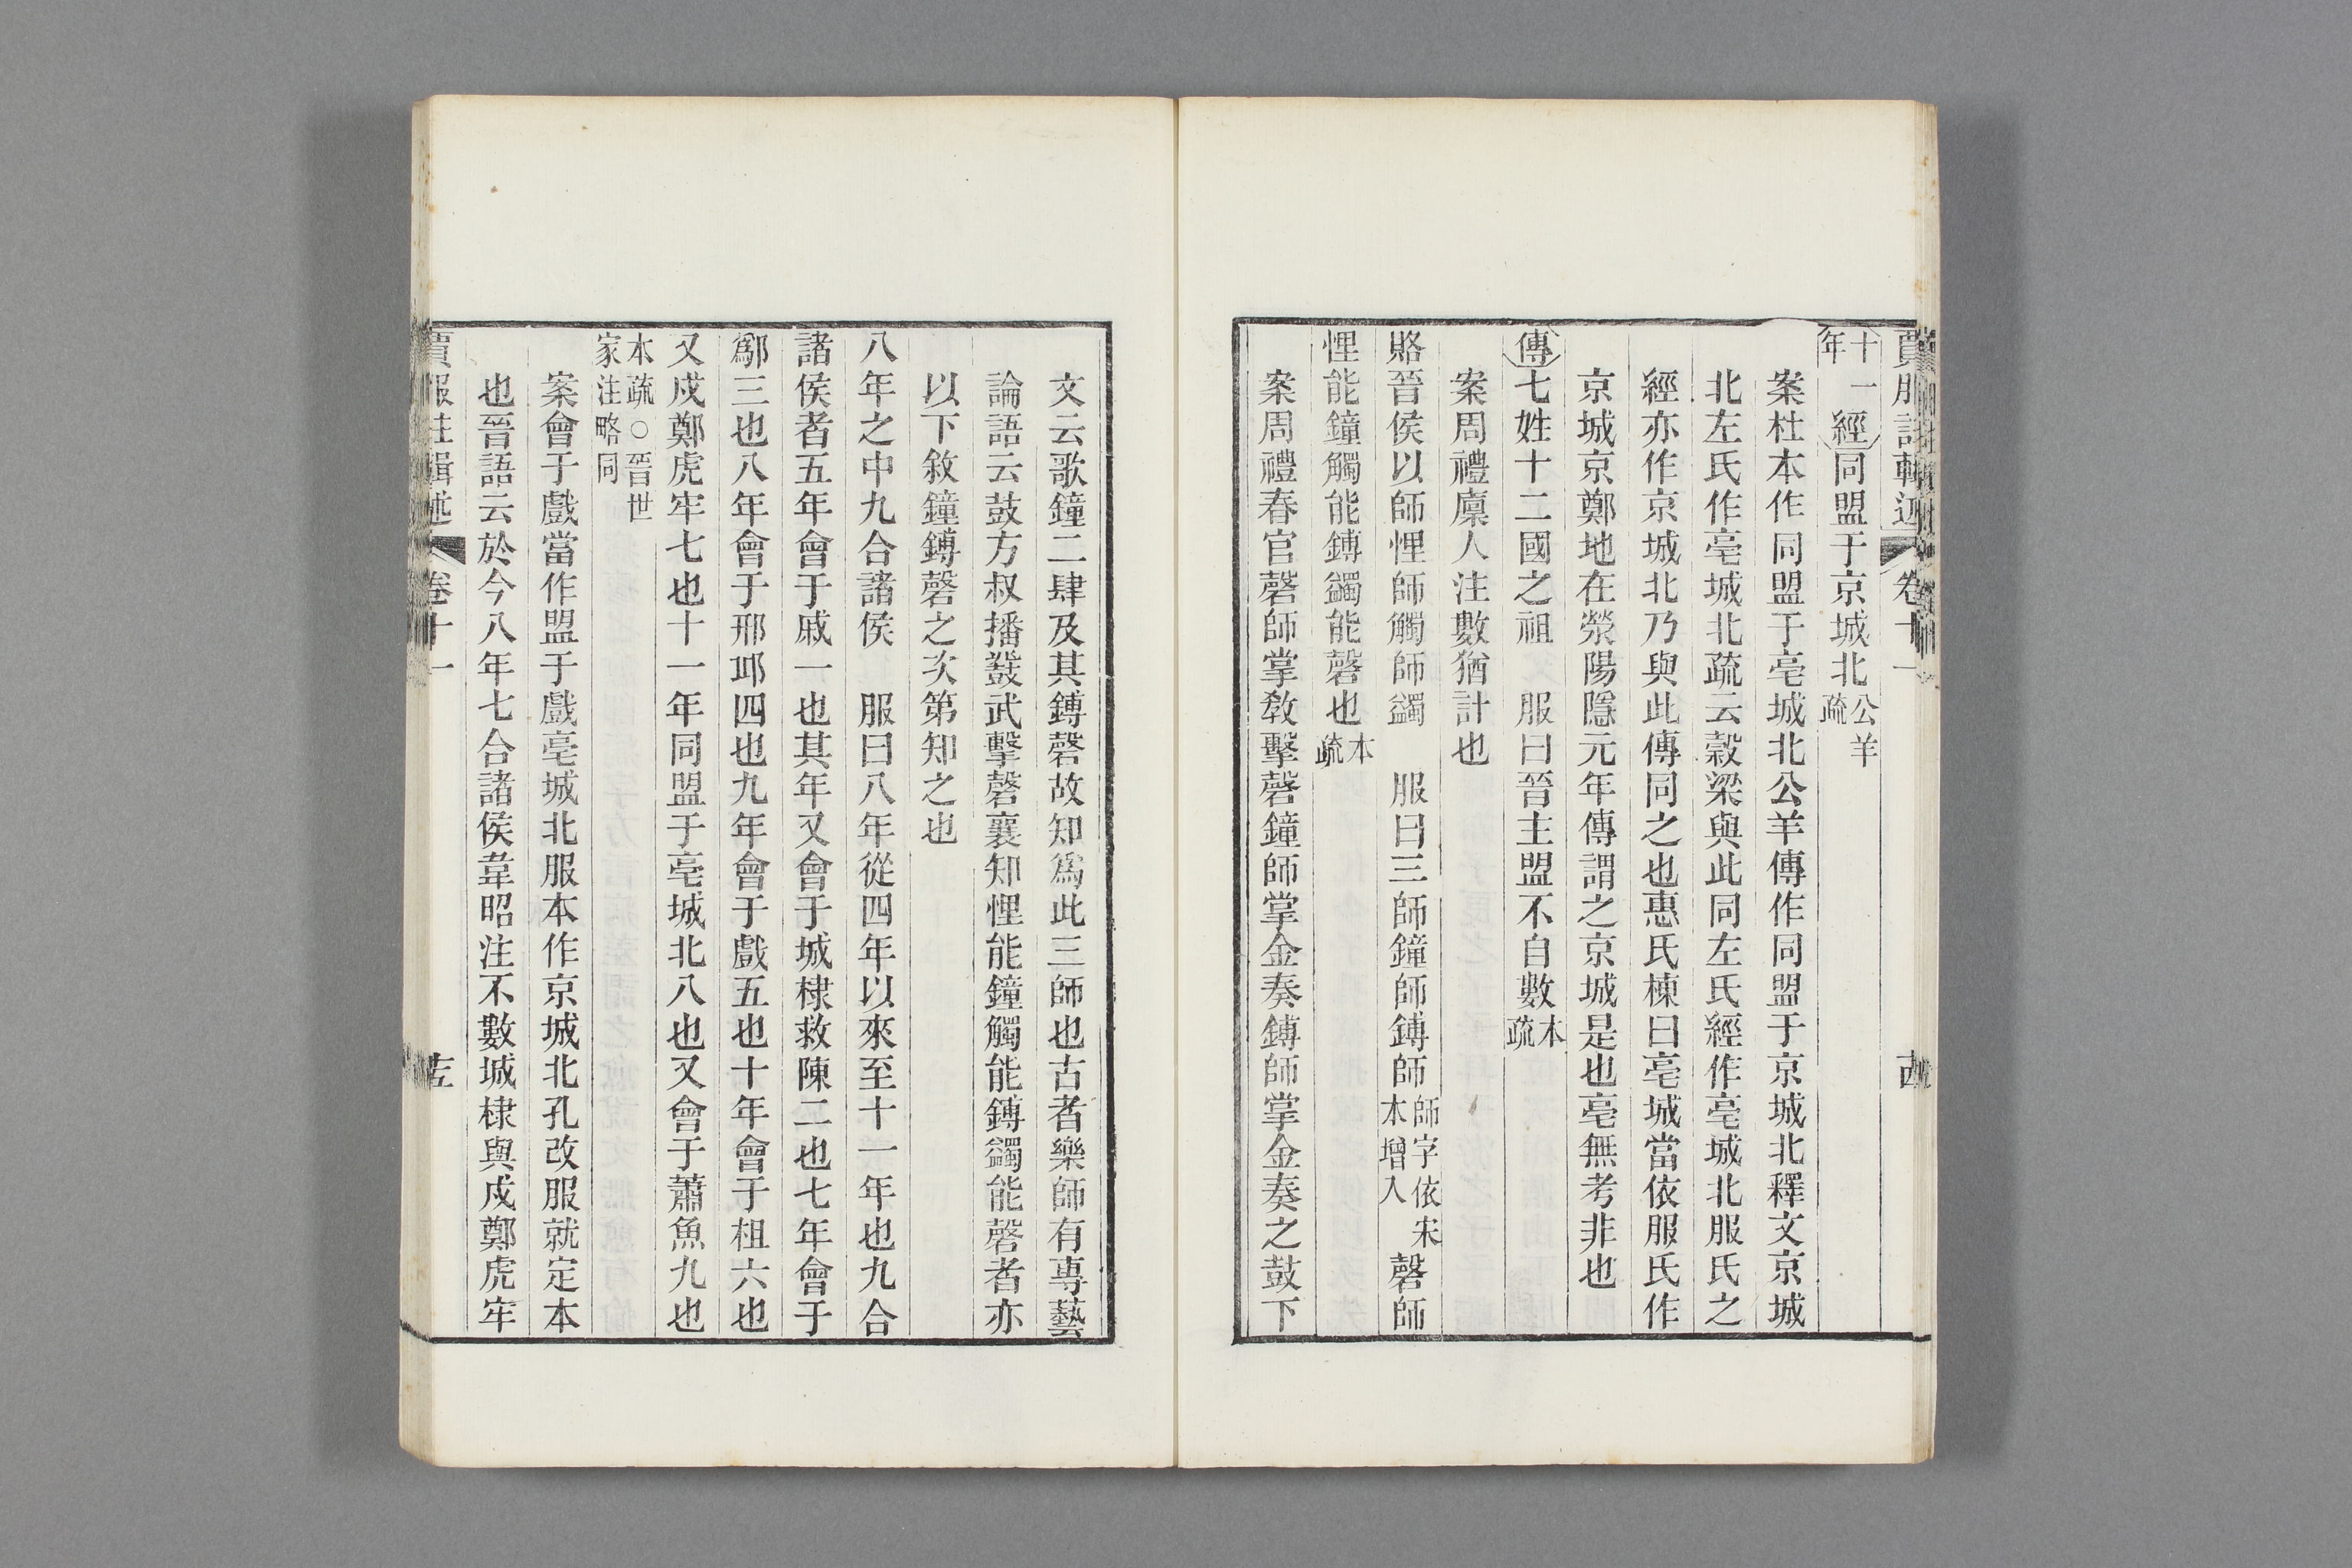 賈服註輯述 卷十一 十四
十一年 經 同盟于京城北 公羊疏
案杜本作同盟于亳城北公羊傳作同盟于京城北釋文京城
北左氏作亳城北疏云穀梁與此同左氏經作亳城北服氏之
經亦作京城北乃與此傳同之也惠氏棟曰亳城當依服氏作
京城京鄭地在滎陽隱元年傳謂之京城是也亳無考非也
傳 七姓十二國之祖 服曰晉主盟不自數 本疏
案周禮廩人注數猶計也
賂晉侯以師悝師觸師蠲 服曰三師鐘師鎛師 師字依宋本增入 磬師
悝能鐘觸能鎛蠲能磬也 本疏
案周禮春官磬師掌教擊磬鐘師掌金奏鎛師掌金奏之鼓下
文云歌鐘二肆及其鎛磬故知爲此三師也古者樂師有專藝
論語云鼓方叔播鼗武擊磬襄知悝能鐘觸能鎛蠲能磬者亦
以下敘鐘鎛磬之次第知之也
八年之中九合諸侯 服曰八年從四年以來至十一年也九合
諸侯者五年會于戚一也其年又會于城棣救陳二也七年會于
鄬三也八年會于邢邱四也九年會于戲五也十年會于柤六也
又戍鄭虎牢七也十一年同盟于亳城北八也又會于蕭魚九也
本疏○晉世家注略同
案會于戲當作盟于戲亳城北服本作京城北孔改服就定本
也晉語云於今八年七合諸侯韋昭注不數城棣與戍鄭虎牢
賈服註輯述 卷十一 十五